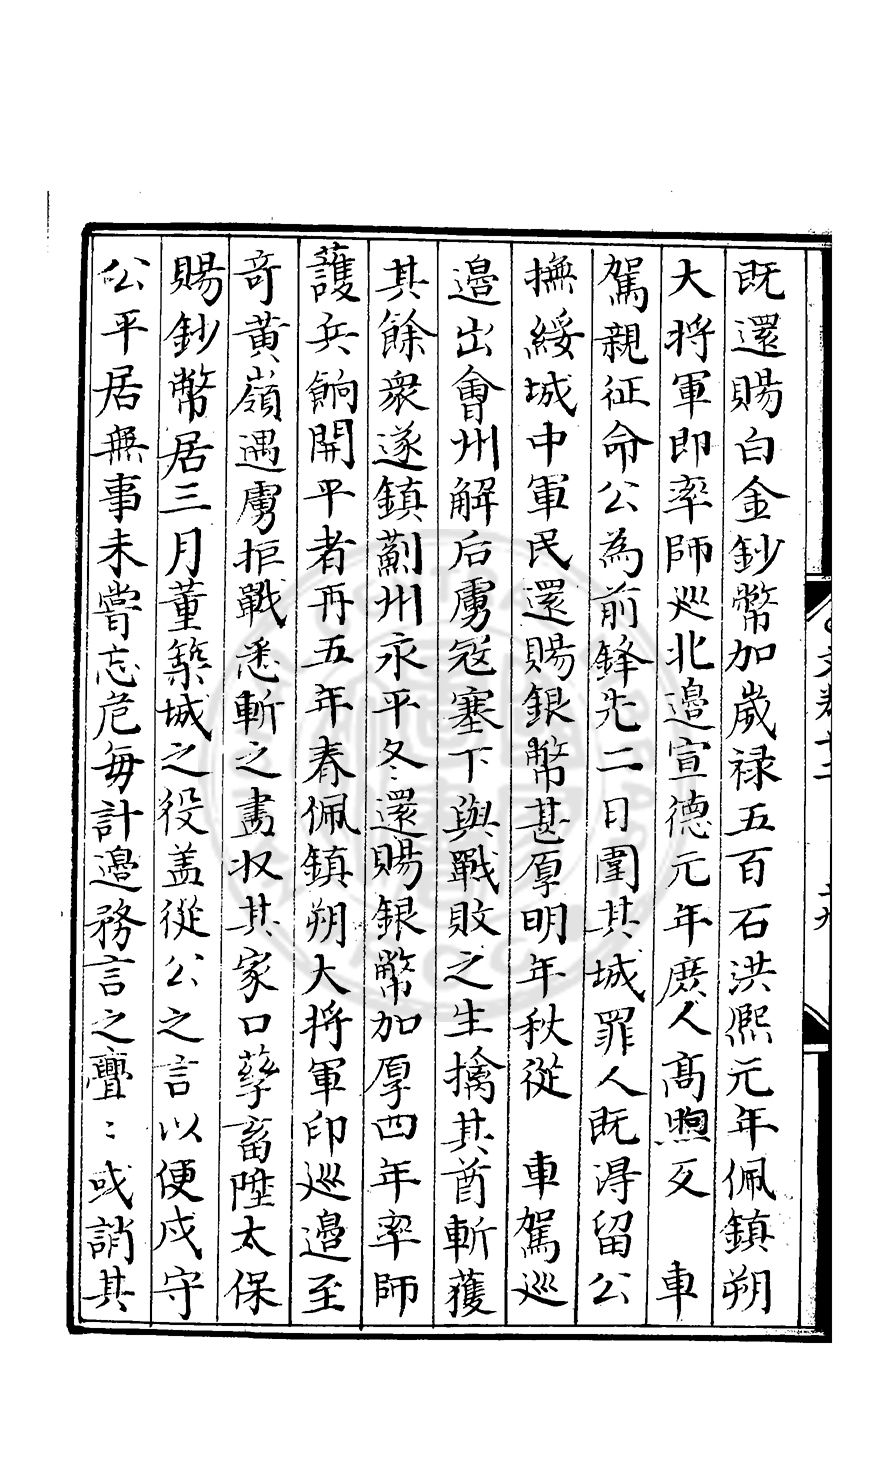 既還賜白金鈔幣加歲禄五百石洪熙元年佩鎮朔
大将軍即率師巡北邉宣德元年庶人髙煦叉　車
駕親征命公為前鋒先二日圍其城罪人既淂留公
撫綏城中軍民還賜銀幣甚厚明年秋從　車駕巡
邉出會州解后虜寇塞下與戰敗之生擒其酋斬獲
其餘衆遂鎮薊州永平冬還賜銀幣加厚四年率師
護兵餉開平者再五年春佩鎮朔大将軍印巡邉至
奇黄嶺遇虜拒戰悉斬之盡収其家口孳畜陞太保
賜鈔幣居三月董築城之役盖從公之言以便戍守
公平居無事未嘗忘危每計邉務言之亹〻或誚其
文卷十二